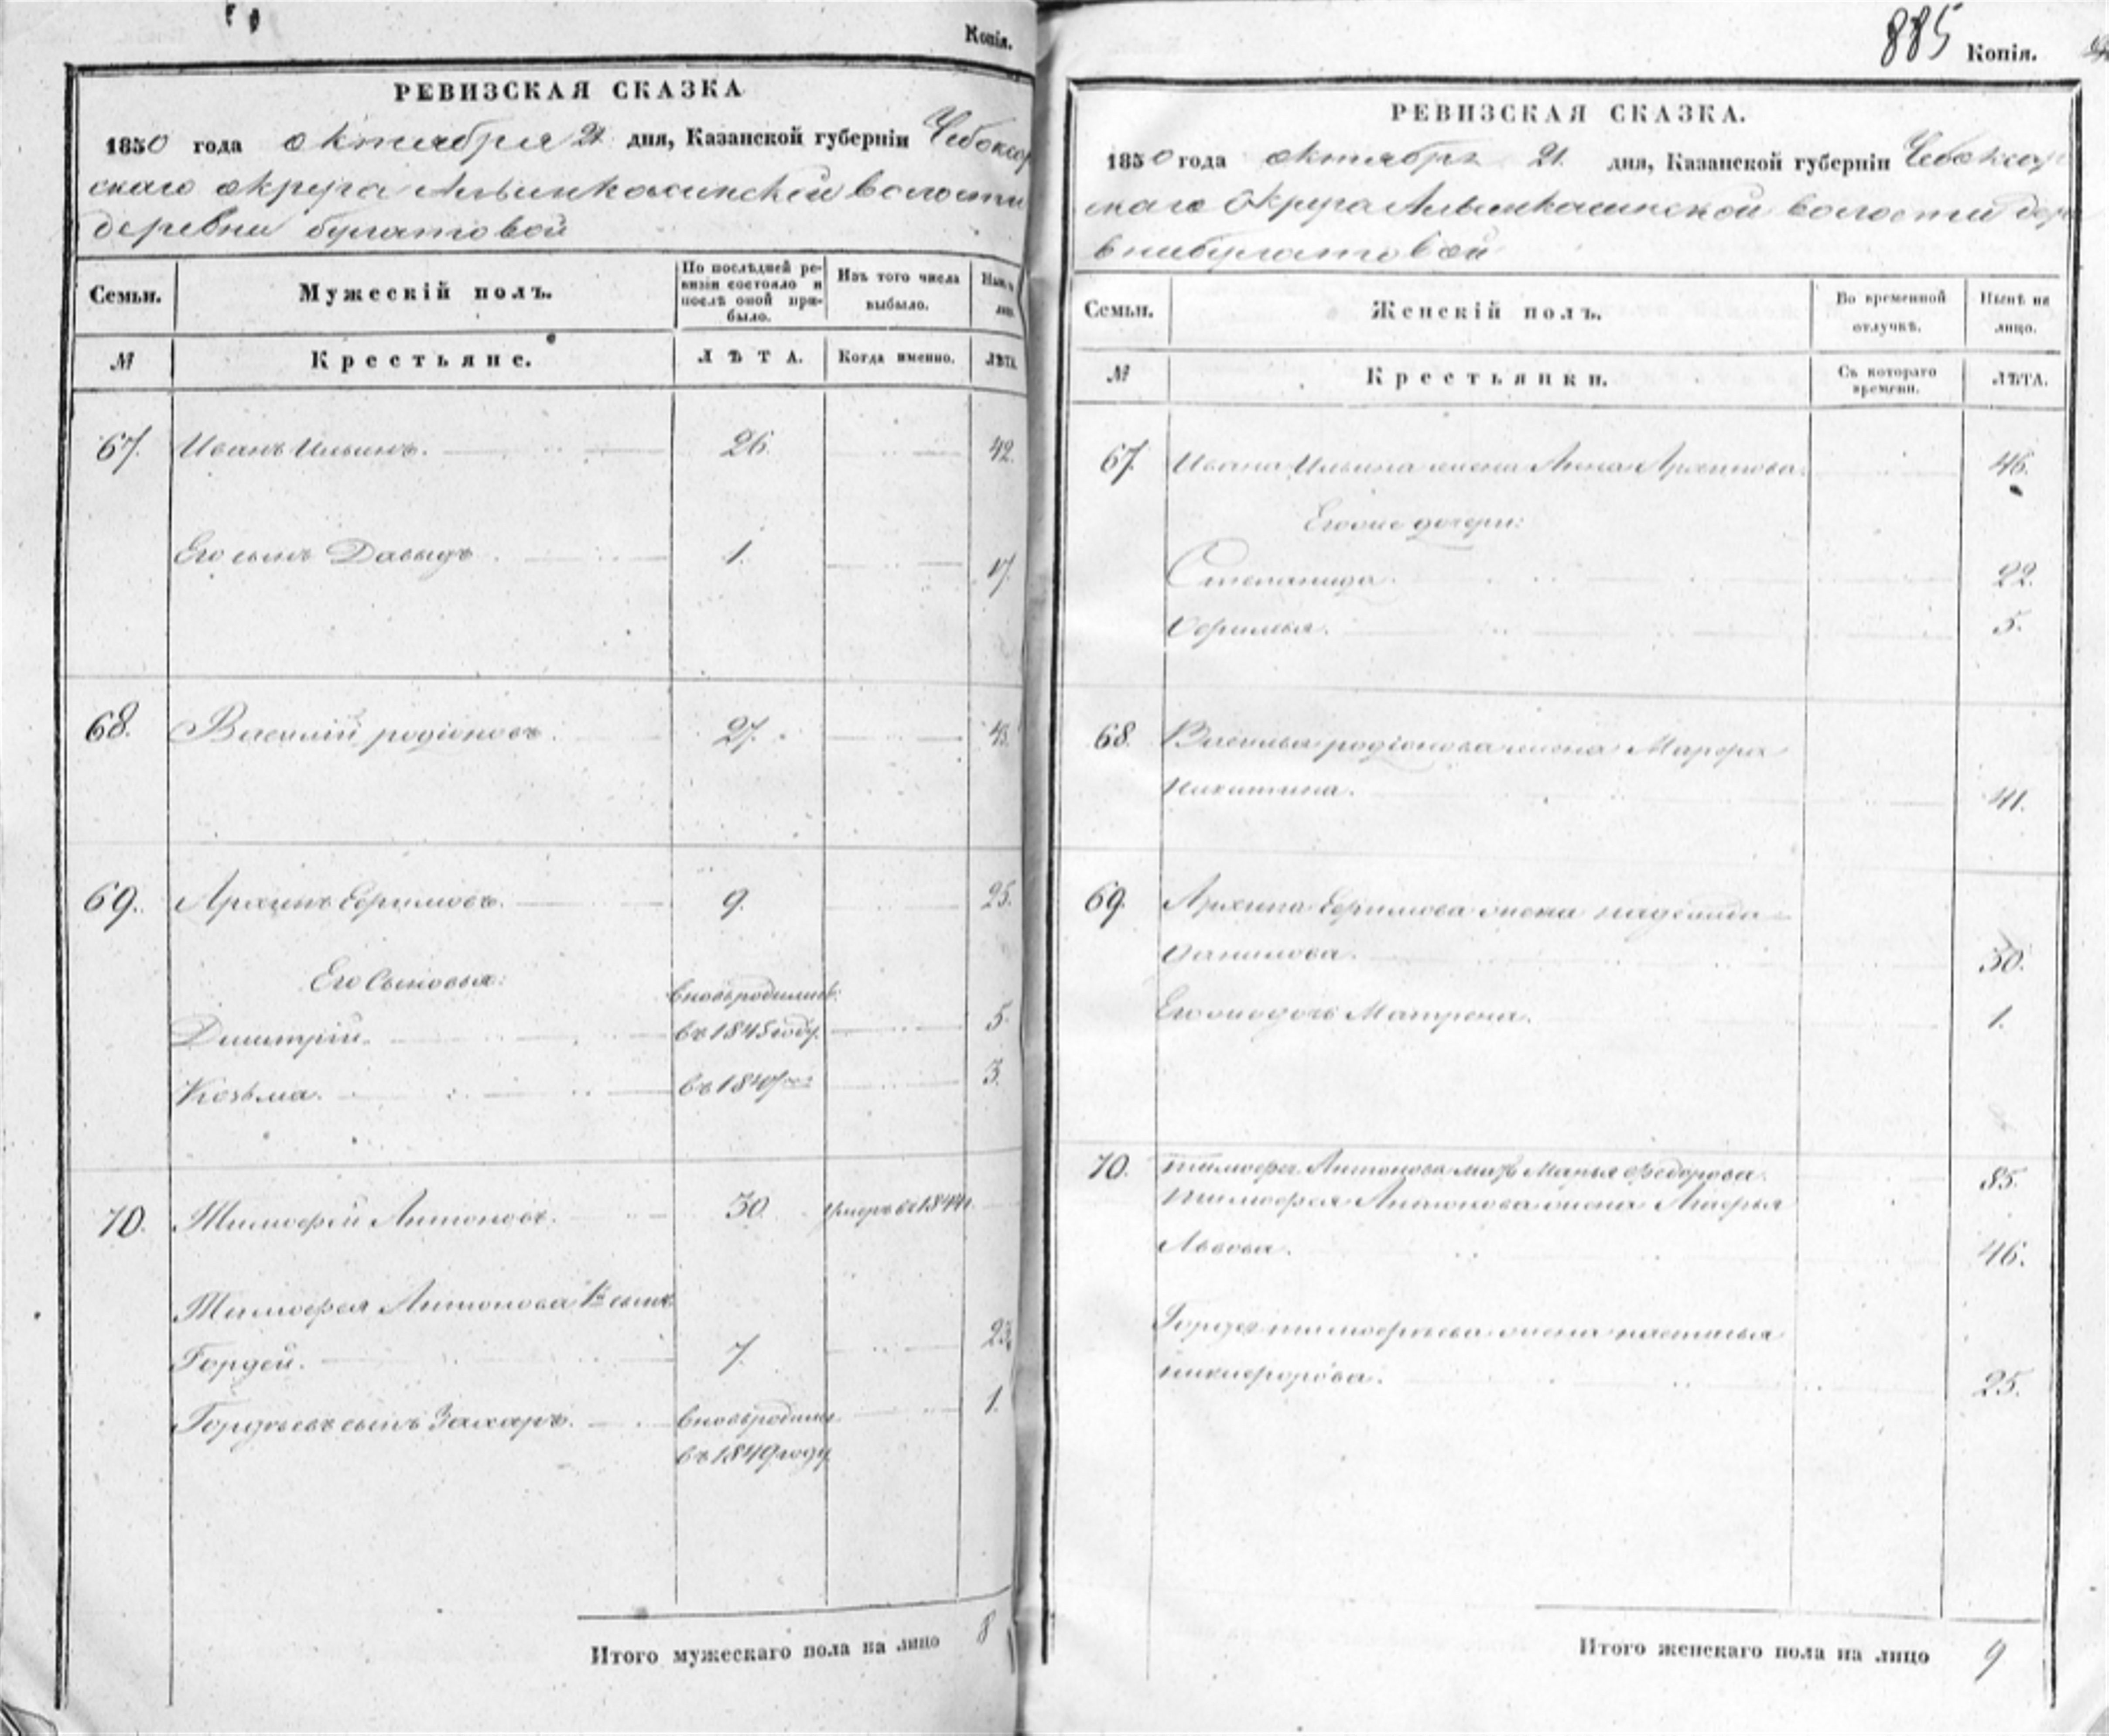 Копія.
РЕВИЗСКАЯ СКАЗКА
1850 года октября 21 дня, Казанской губерніи Чебоксар
скаго округа Алымкасинской волости
деревни булатовой
Семьи.
Мужескій полъ.
По послѣдней ре-
визіи состояло и
послѣ оной при-
было.
Изъ того числа
выбыло.
№
Крестьяне.
ЛѢТА.
Когда именно.
ЛѢТА
67. Иванъ Ильинъ. 26. 42.
Его сынъ Давыдъ 1. 17.
68. Василий родіоновъ. 27. 43.
69. Архипъ Ефимовъ. 9. 25.
Его Сыновья: вновь родились:
Димитрій. въ 1845 году. 5.
Козьма. въ 1847 3.
70. Тимофей Антоновъ. 30. умеръ въ 1844
Тимофея Антонова 1й сынъ
Гордей. 7. 23.
Гордѣевъ сынъ Захаръ. вновь родился 1.
въ 1849 году
Итого мужескаго пола на лицо 8
885 Копія.
РЕВИЗСКАЯ СКАЗКА.
1850 года октября 21. дня, Казанской губерніи Чебоксар
скаго Округа Алымкасинской волости дер
вни булатовой
Семьи.
Женскій полъ.
Во временной
отлучкѣ.
Нынѣ на
лицо.
№
Крестьянки.
Съ котораго
времени.
ЛѢТА.
67. Ивана Ильина жена Анна Архипова. 46.
Его же дочери:
Степанида. 22.
5.
68. Василья родіонова жена Марфа
никитина. 41.
69. Архипа Ефимова жена надежда
Данилова. 30.
Его же дочь Матрена. 1.
70. тимофея Антонова мать Марья Федорова. 85.
тимофея Антонова жена
Львова. 46.
Гордея тимофеева жена настасья
никифорова. 25.
Итого женскаго пола на лицо 9